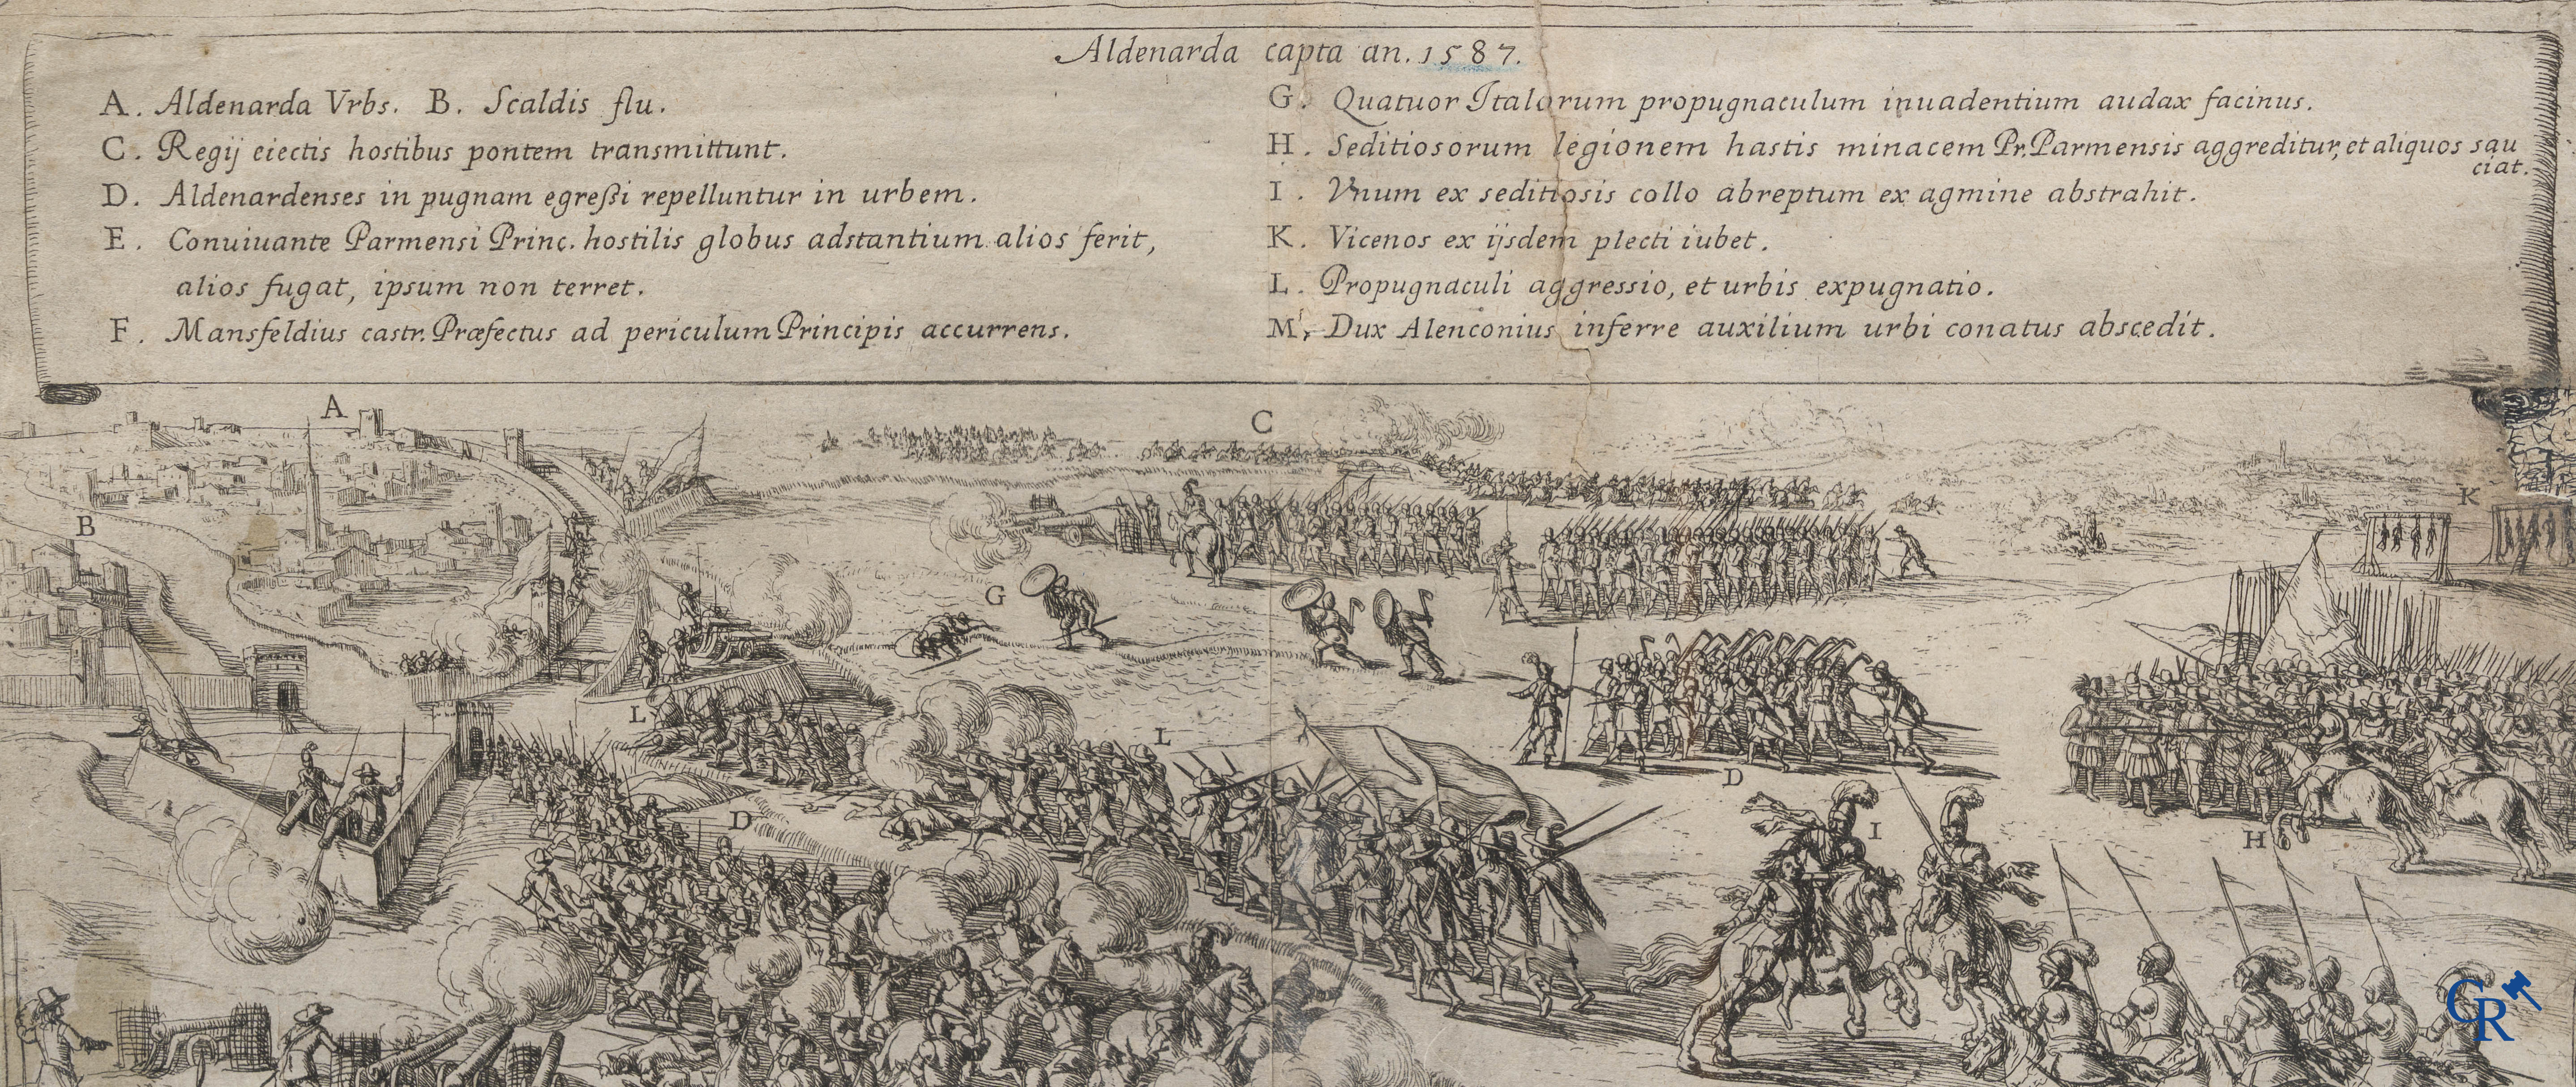 Aldenarda capta an. 1587.
A. Aldenarda Vrbs. B. Scaldis flu.
C. Regij eiectis hostibus pontem transmittunt.
D. Aldenardenses in pugnam egreßi repelluntur in urbem.
E. Conuiuante Parmensi Princ. hostilis globus adstantium alios ferit,
alios fugat, ipsum non terret.
F. Mansfeldius castr. Præfectus ad periculum Principis accurrens.
G. Quatuor Italorum propugnaculum inuadentium audax facinus.
H. Seditiosorum legionem hastis minacem Pr. Parmensis aggreditur, et aliquos sau
ciat.
I. Vnum ex seditiosis collo abreptum ex agmine abstrahit.
K. Vicenos ex ijsdem plecti iubet.
L. Propugnaculi aggressio, et urbis expugnatio.
M. Dux Alenconius inferre auxilium urbi conatus abscedit.
A
C
K
B
G
L
L
D
D
I
H
CR